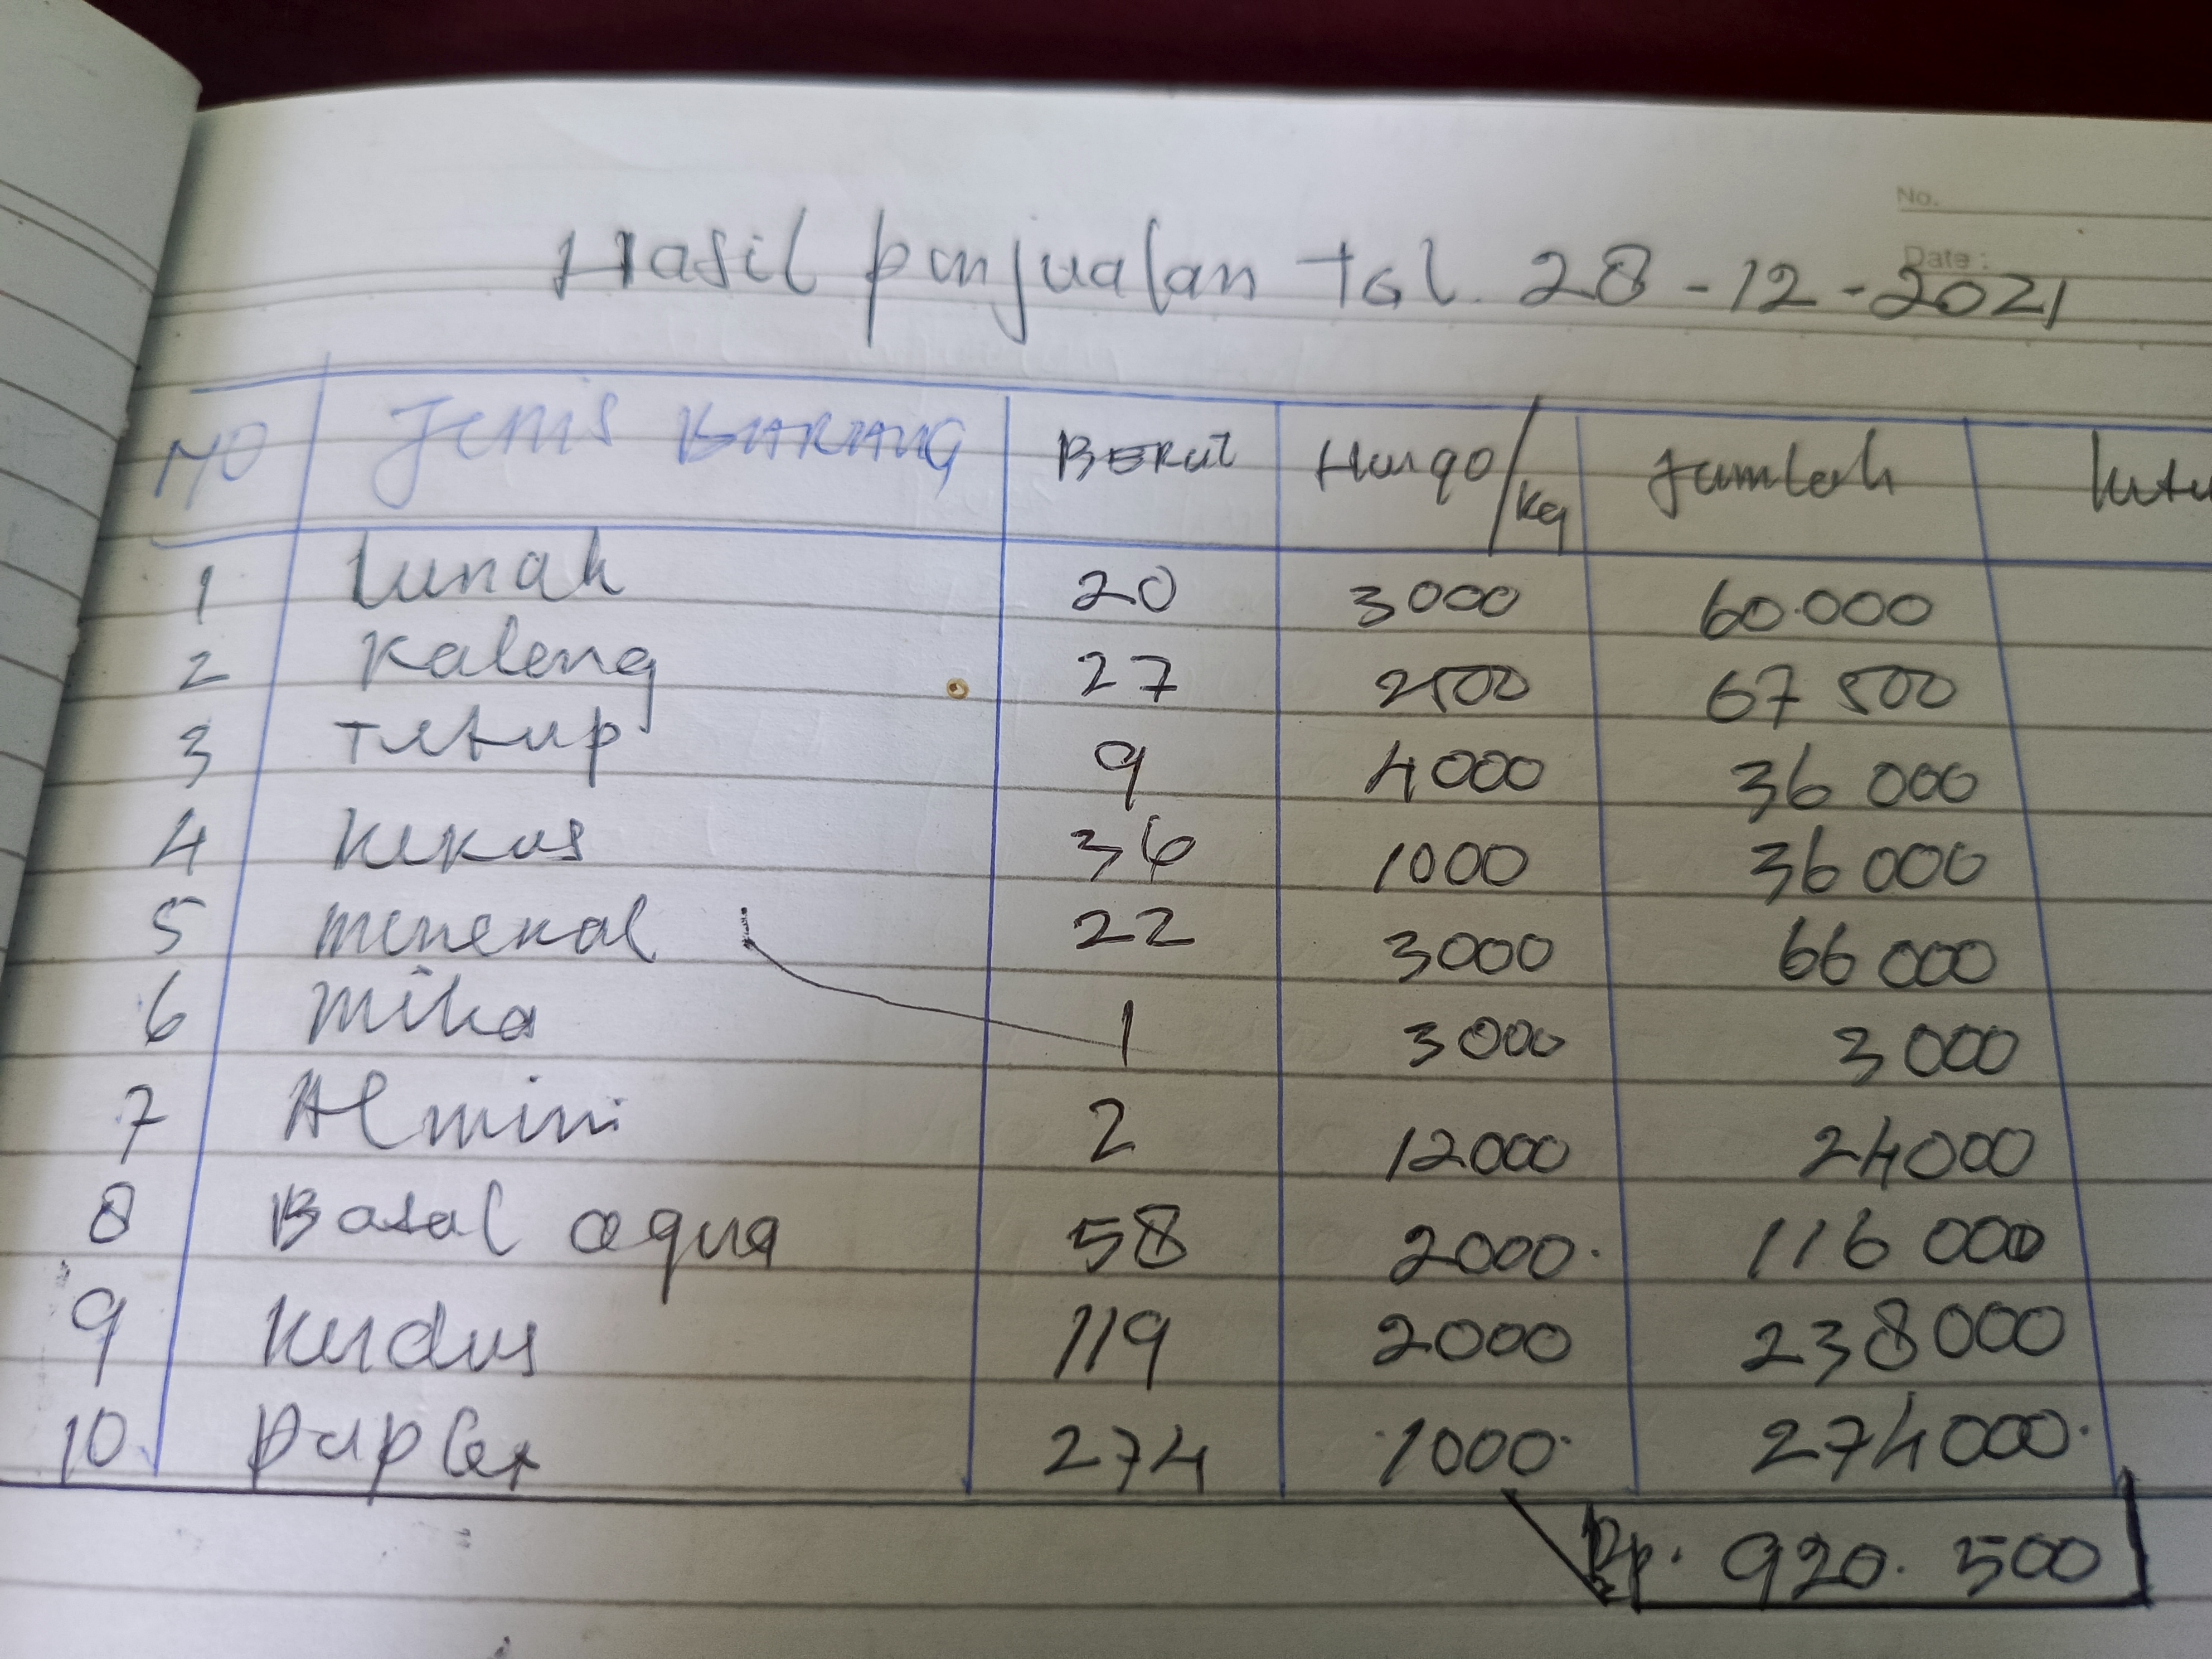 No.
Date :
Hasil penjualan Tgl. 28-12-2021
NO Jenis BARANG BERat Harga/kg Jumlah
1 Lunak 20 3000 60.000
2 Kaleng 27 2500 67 500
3 Tutup 9 4000 36 000
4 36 1000 36 000
5 Minekal 22 3000 66 000
6 Mika 1 3000 3 000
7 Almini 2 12000 24000
8 Botol aqua 58 2000. 116 000
9 Kurdus 119 2000 238000
10 Duplex 274 1000 274000.
Rp. 920.500